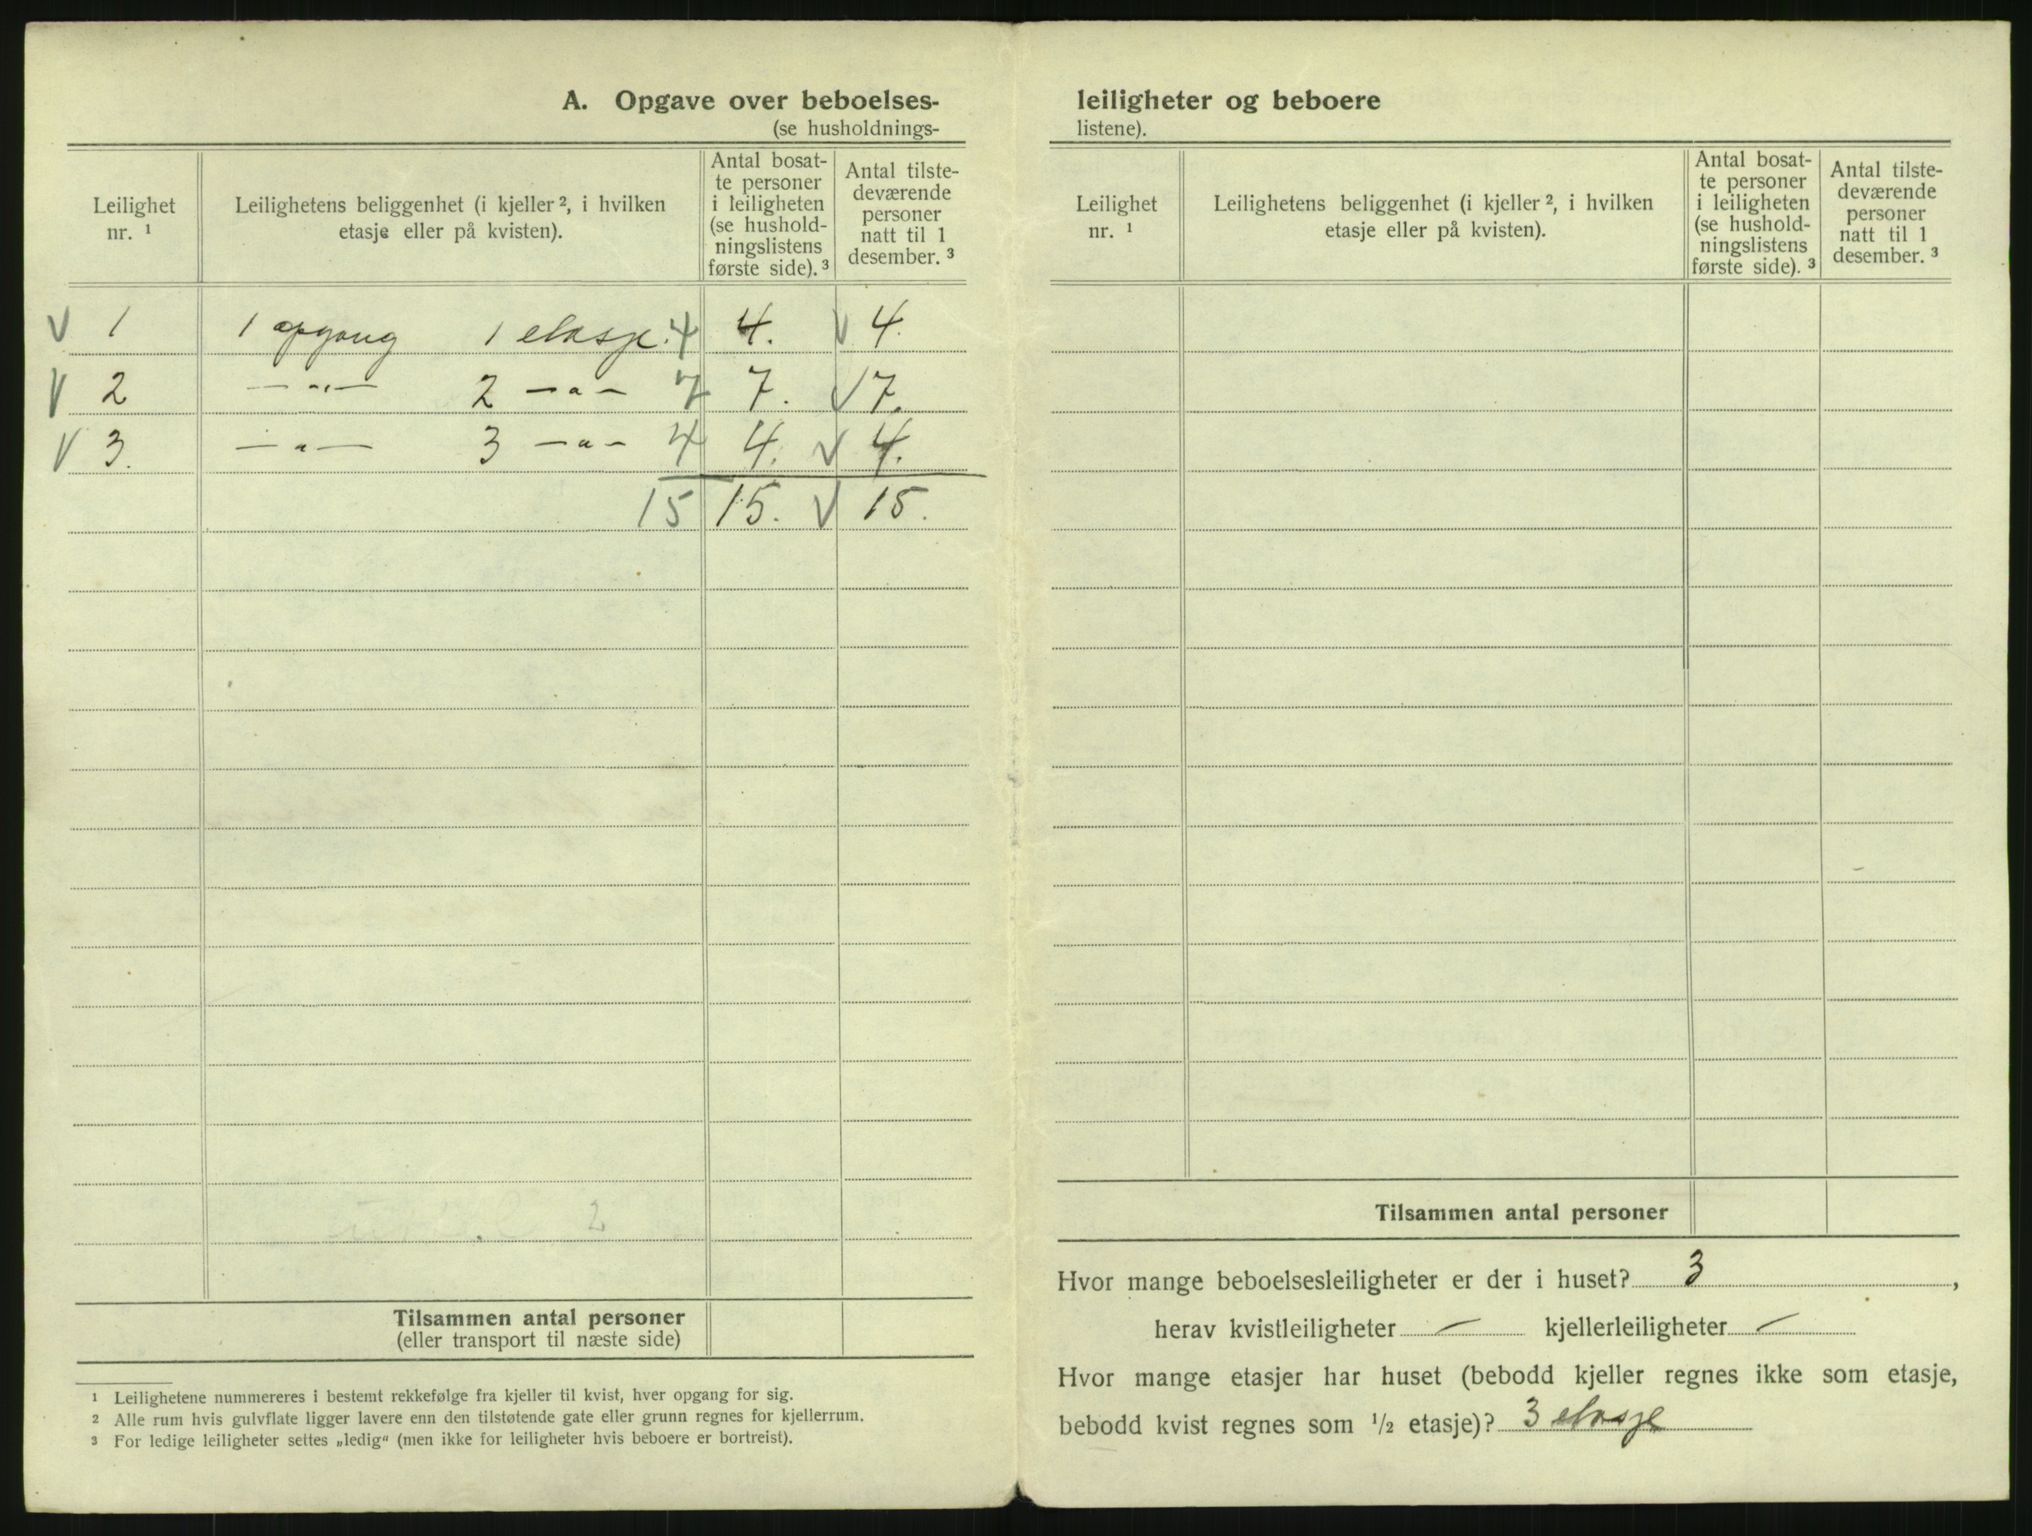 A. Opgave over beboelses-
(se husholdnings-
Leilighet
nr. ¹
Leilighetens beliggenhet (i kjeller ², i hvilken
etasje eller på kvisten).
Antal bosat-
te personer
i leiligheten
(se hushold-
ningslistens
første side). ³
Antal tilste-
deværende
personer
natt til 1
desember. ³
V 1 1 opgang 1 etasje. 4 4. V 4.
V 2 —"— 2 —"— 7 7. V 7.
V 3. —"— 3 —"— 4 4. V 4.
15 15. V 15.
2
Tilsammen antal personer
(eller transport til næste side)
¹ Leilighetene nummereres i bestemt rekkefølge fra kjeller til kvist, hver opgang for sig.
² Alle rum hvis gulvflate ligger lavere enn den tilstøtende gate eller grunn regnes for kjellerrum.
³ For ledige leiligheter settes „ledig“ (men ikke for leiligheter hvis beboere er bortreist).
leiligheter og beboere
listene).
Leilighet
nr. ¹
Leilighetens beliggenhet (i kjeller ², i hvilken
etasje eller på kvisten).
Antal bosat-
te personer
i leiligheten
(se hushold-
ningslistens
første side). ³
Antal tilste-
deværende
personer
natt til 1
desember. ³
Tilsammen antal personer
Hvor mange beboelsesleiligheter er der i huset? 3 ,
herav kvistleiligheter — kjellerleiligheter —
Hvor mange etasjer har huset (bebodd kjeller regnes ikke som etasje,
bebodd kvist regnes som ½ etasje)? 3 etasje